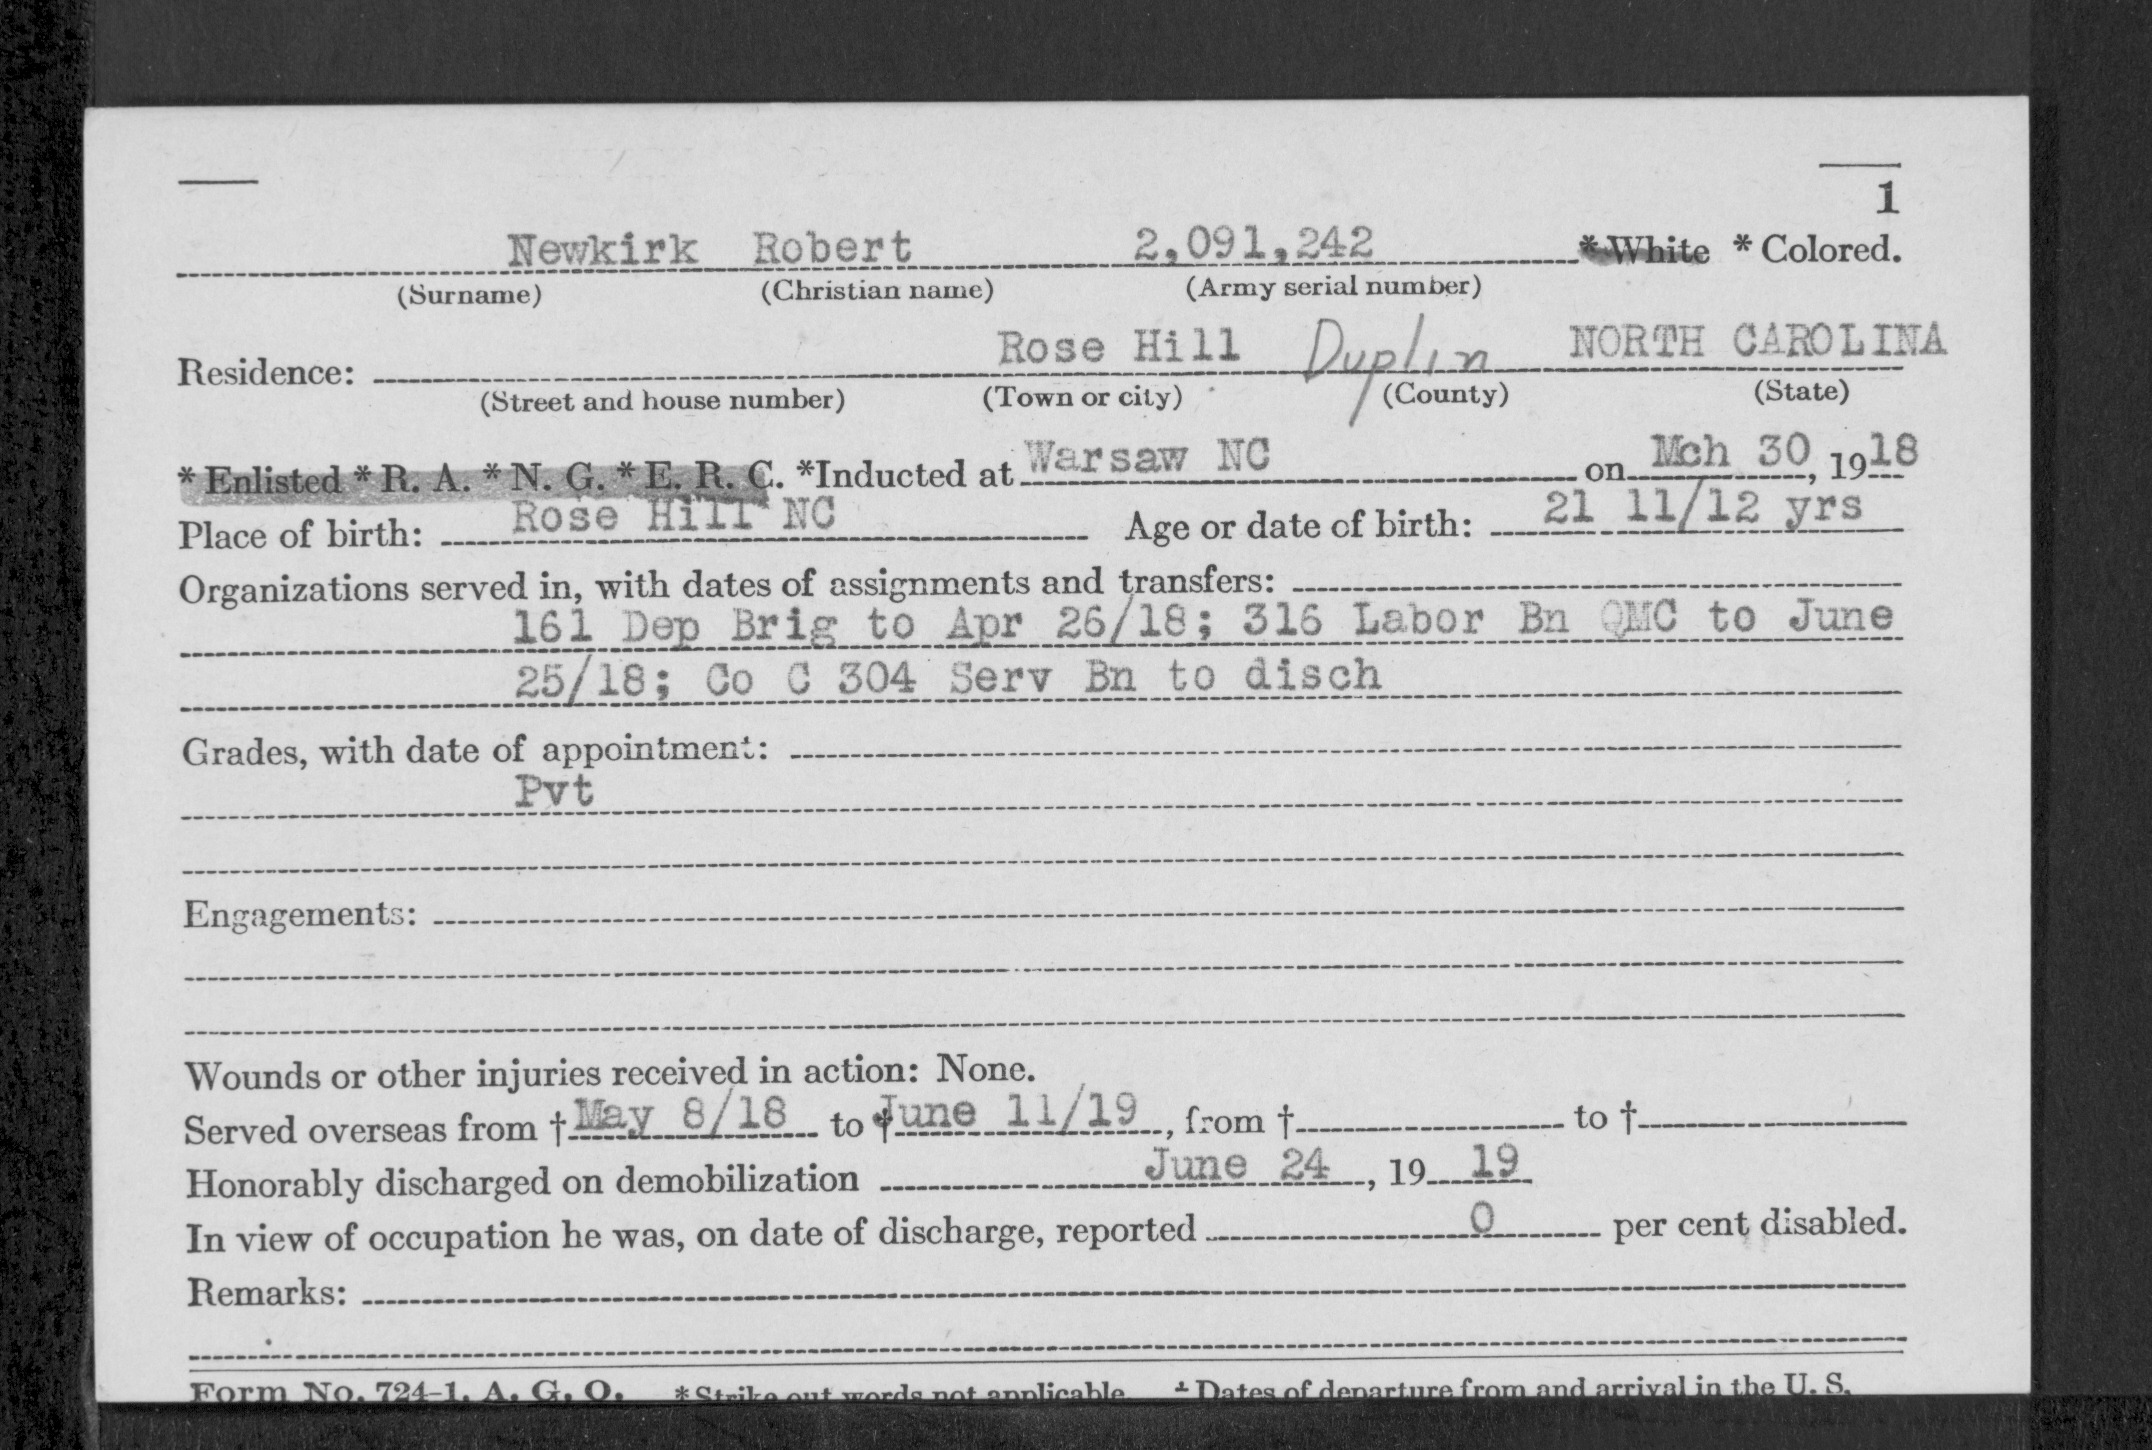 1
Newkirk Robert 2,091,242 * White * Colored.
(Surname) (Christian name) (Army serial number)
Residence: Rose Hill Duplin NORTH CAROLINA
(Street and house number) (Town or city) (County) (State)
* Enlisted * R. A. * N. G. * E. R. C. *Inducted at Warsaw NC on Mch 30, 1918
Place of birth: Rose Hill NC Age or date of birth: 21 11/12 yrs
Organizations served in, with dates of assignments and transfers:
161 Dep Brig to Apr 26/18; 316 Labor Bn QMC to June
25/18; Co C 304 Serv Bn to disch
Grades, with date of appointment:
Pvt
Engagements:
Wounds or other injuries received in action: None.
Served overseas from † May 8/18 to † June 11/19, from † to †
Honorably discharged on demobilization June 24, 19 19
In view of occupation he was, on date of discharge, reported 0 per cent disabled.
Remarks:
Form No. 724-1, A. G. O. * Strike out words not applicable. † Dates of departure from and arrival in the U. S.